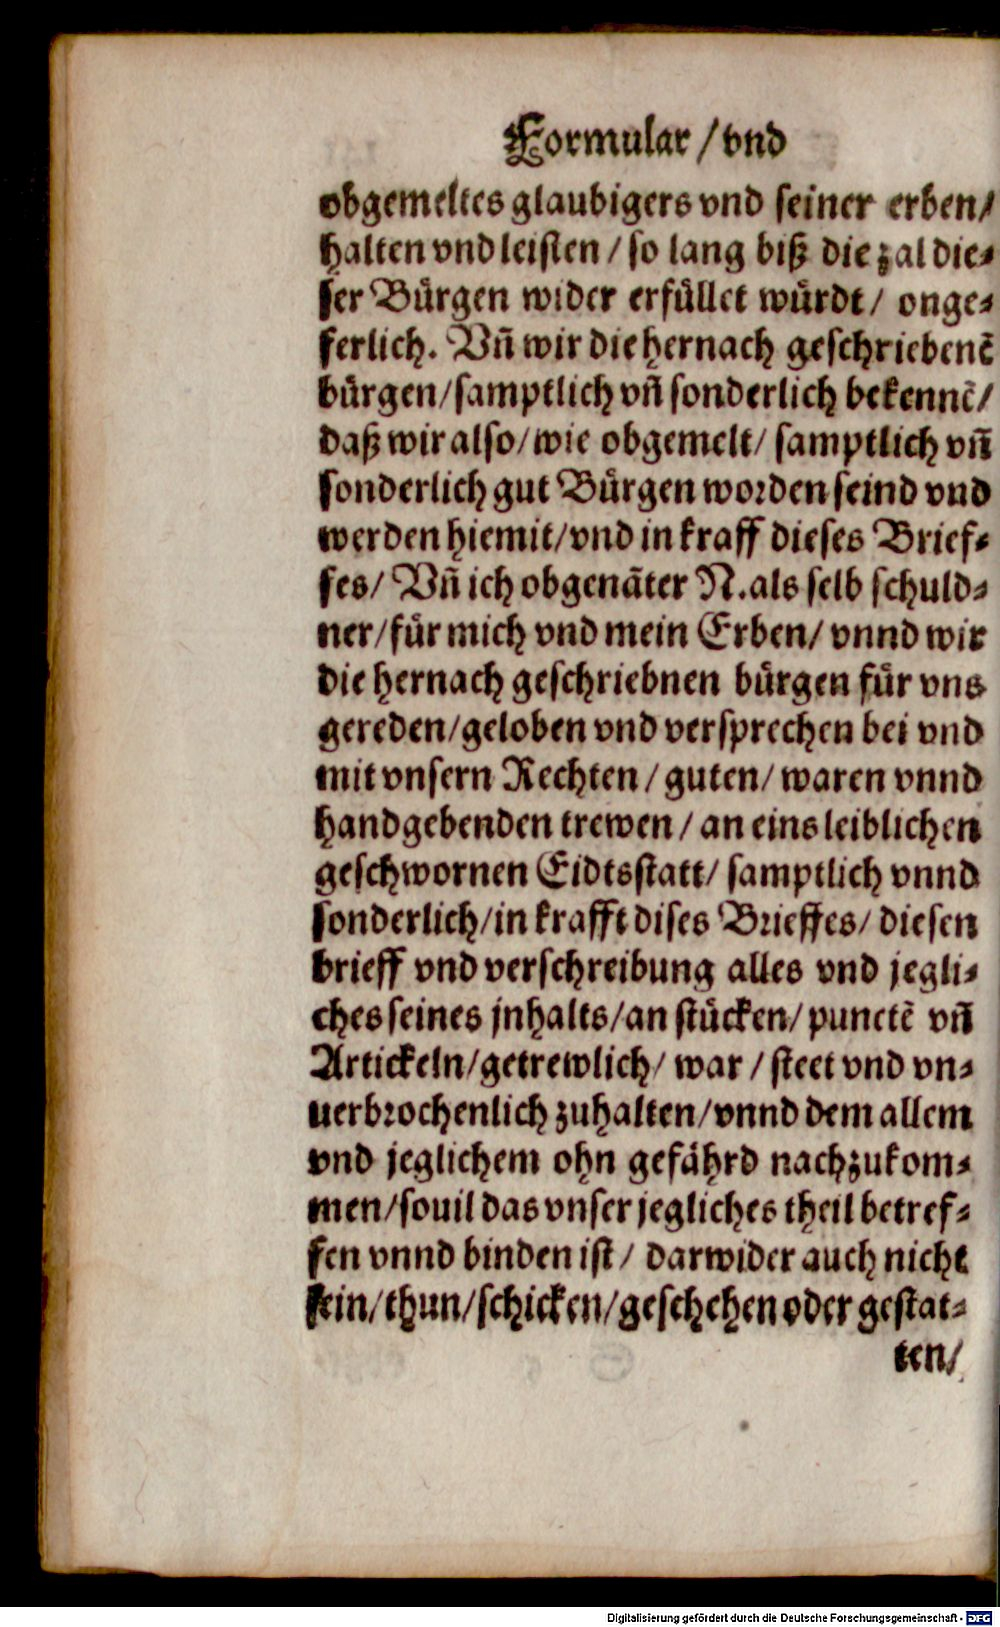 Formular / vnd
obgemeltes glaubigers vnd seiner erben/
halten vnd leisten / so lang biß die zal die⸗
ser Bürgen wider erfüllet würdt / onge⸗
ferlich. Vñ wir die hernach geschriebenẽ
bürgen/samptlich vñ sonderlich bekennẽ/
daß wir also/wie obgemelt/ samptlich vñ
sonderlich gut Bürgen worden seind vnd
werden hiemit/vnd in kraff dieses Brief⸗
fes/ Vñ ich obgenãter N. als selb schuld⸗
ner/für mich vnd mein Erben/ vnnd wir
die hernach geschriebnen bürgen für vns
gereden/geloben vnd versprechen bei vnd
mit vnsern Rechten / guten/ waren vnnd
handgebenden trewen / an eins leiblichen
geschwornen Eidtsstatt/ samptlich vnnd
sonderlich/in krafft dises Brieffes/ diesen
brieff vnd verschreibung alles vnd jegli⸗
ches seines jnhalts/an stücken/ punctẽ vñ
Artickeln/getrewlich/ war / steet vnd vn⸗
uerbrochenlich zuhalten/vnnd dem allem
vnd jeglichem ohn gefährd nachzukom⸗
men/souil das vnser jegliches theil betref⸗
fen vnnd binden ist / darwider auch nicht
sein/thun/schicken/geschehen oder gestat⸗
ten/
Digitalisierung gefördert durch die Deutsche Forschungsgemeinschaft - DFG